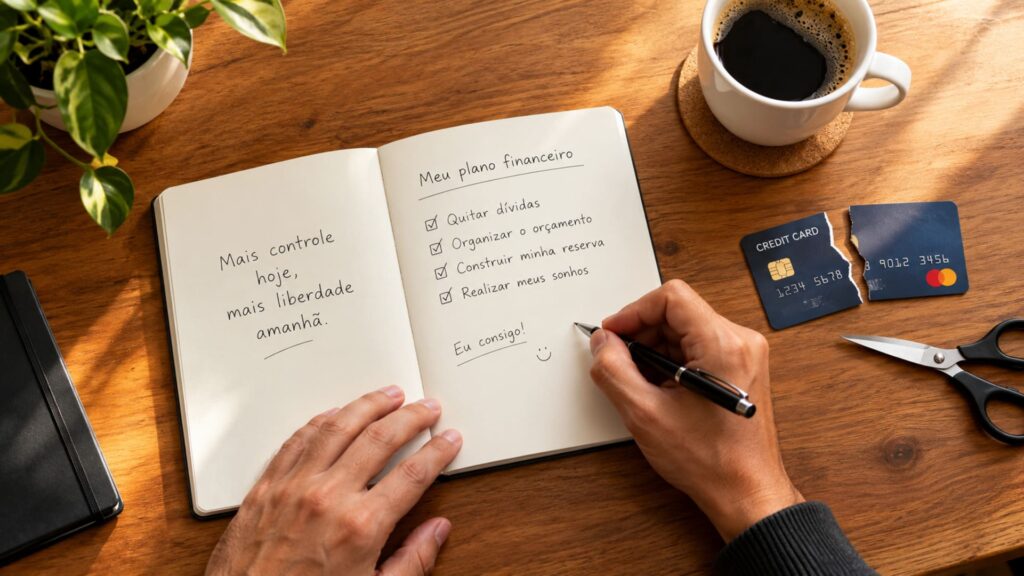 Mais controle
hoje,
mais liberdade
amanhã.
Meu plano financeiro
Quitar dívidas
Organizar o orçamento
Construir minha reserva
Realizar meus sonhos
Eu consigo!
CREDIT CARD
1234 5678
9012 3456